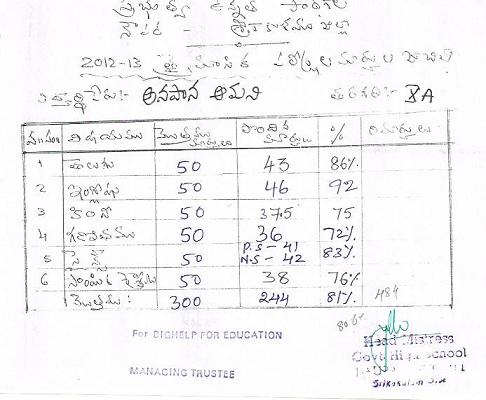 ప్రభుత్వ ఉన్నత పాఠశాల
2012-13 త్రైమాసిక పరీక్షల మార్కుల జాబితా
విద్యార్థి పేరు:- అనపాన ఆమని తరగతి:- X A
వ.సంఖ విషయము మొత్తము మార్కులు పొందిన మార్కులు % రిమార్కులు
1 తెలుగు 50 43 86%
2 ఇంగ్లీషు 50 46 92
3 హిందీ 50 37.5 75
4 గణితము 50 36 72%
5 సైన్స్ 50 P.S - 41 N.S - 42 83%
6 సాంఘిక శాస్త్రం 50 38 76%
మొత్తము: 300 244 81% 484
80.6%
For BIGHELP FOR EDUCATION
MANAGING TRUSTEE
Head Mistress
Govt. High School
Srikakulam